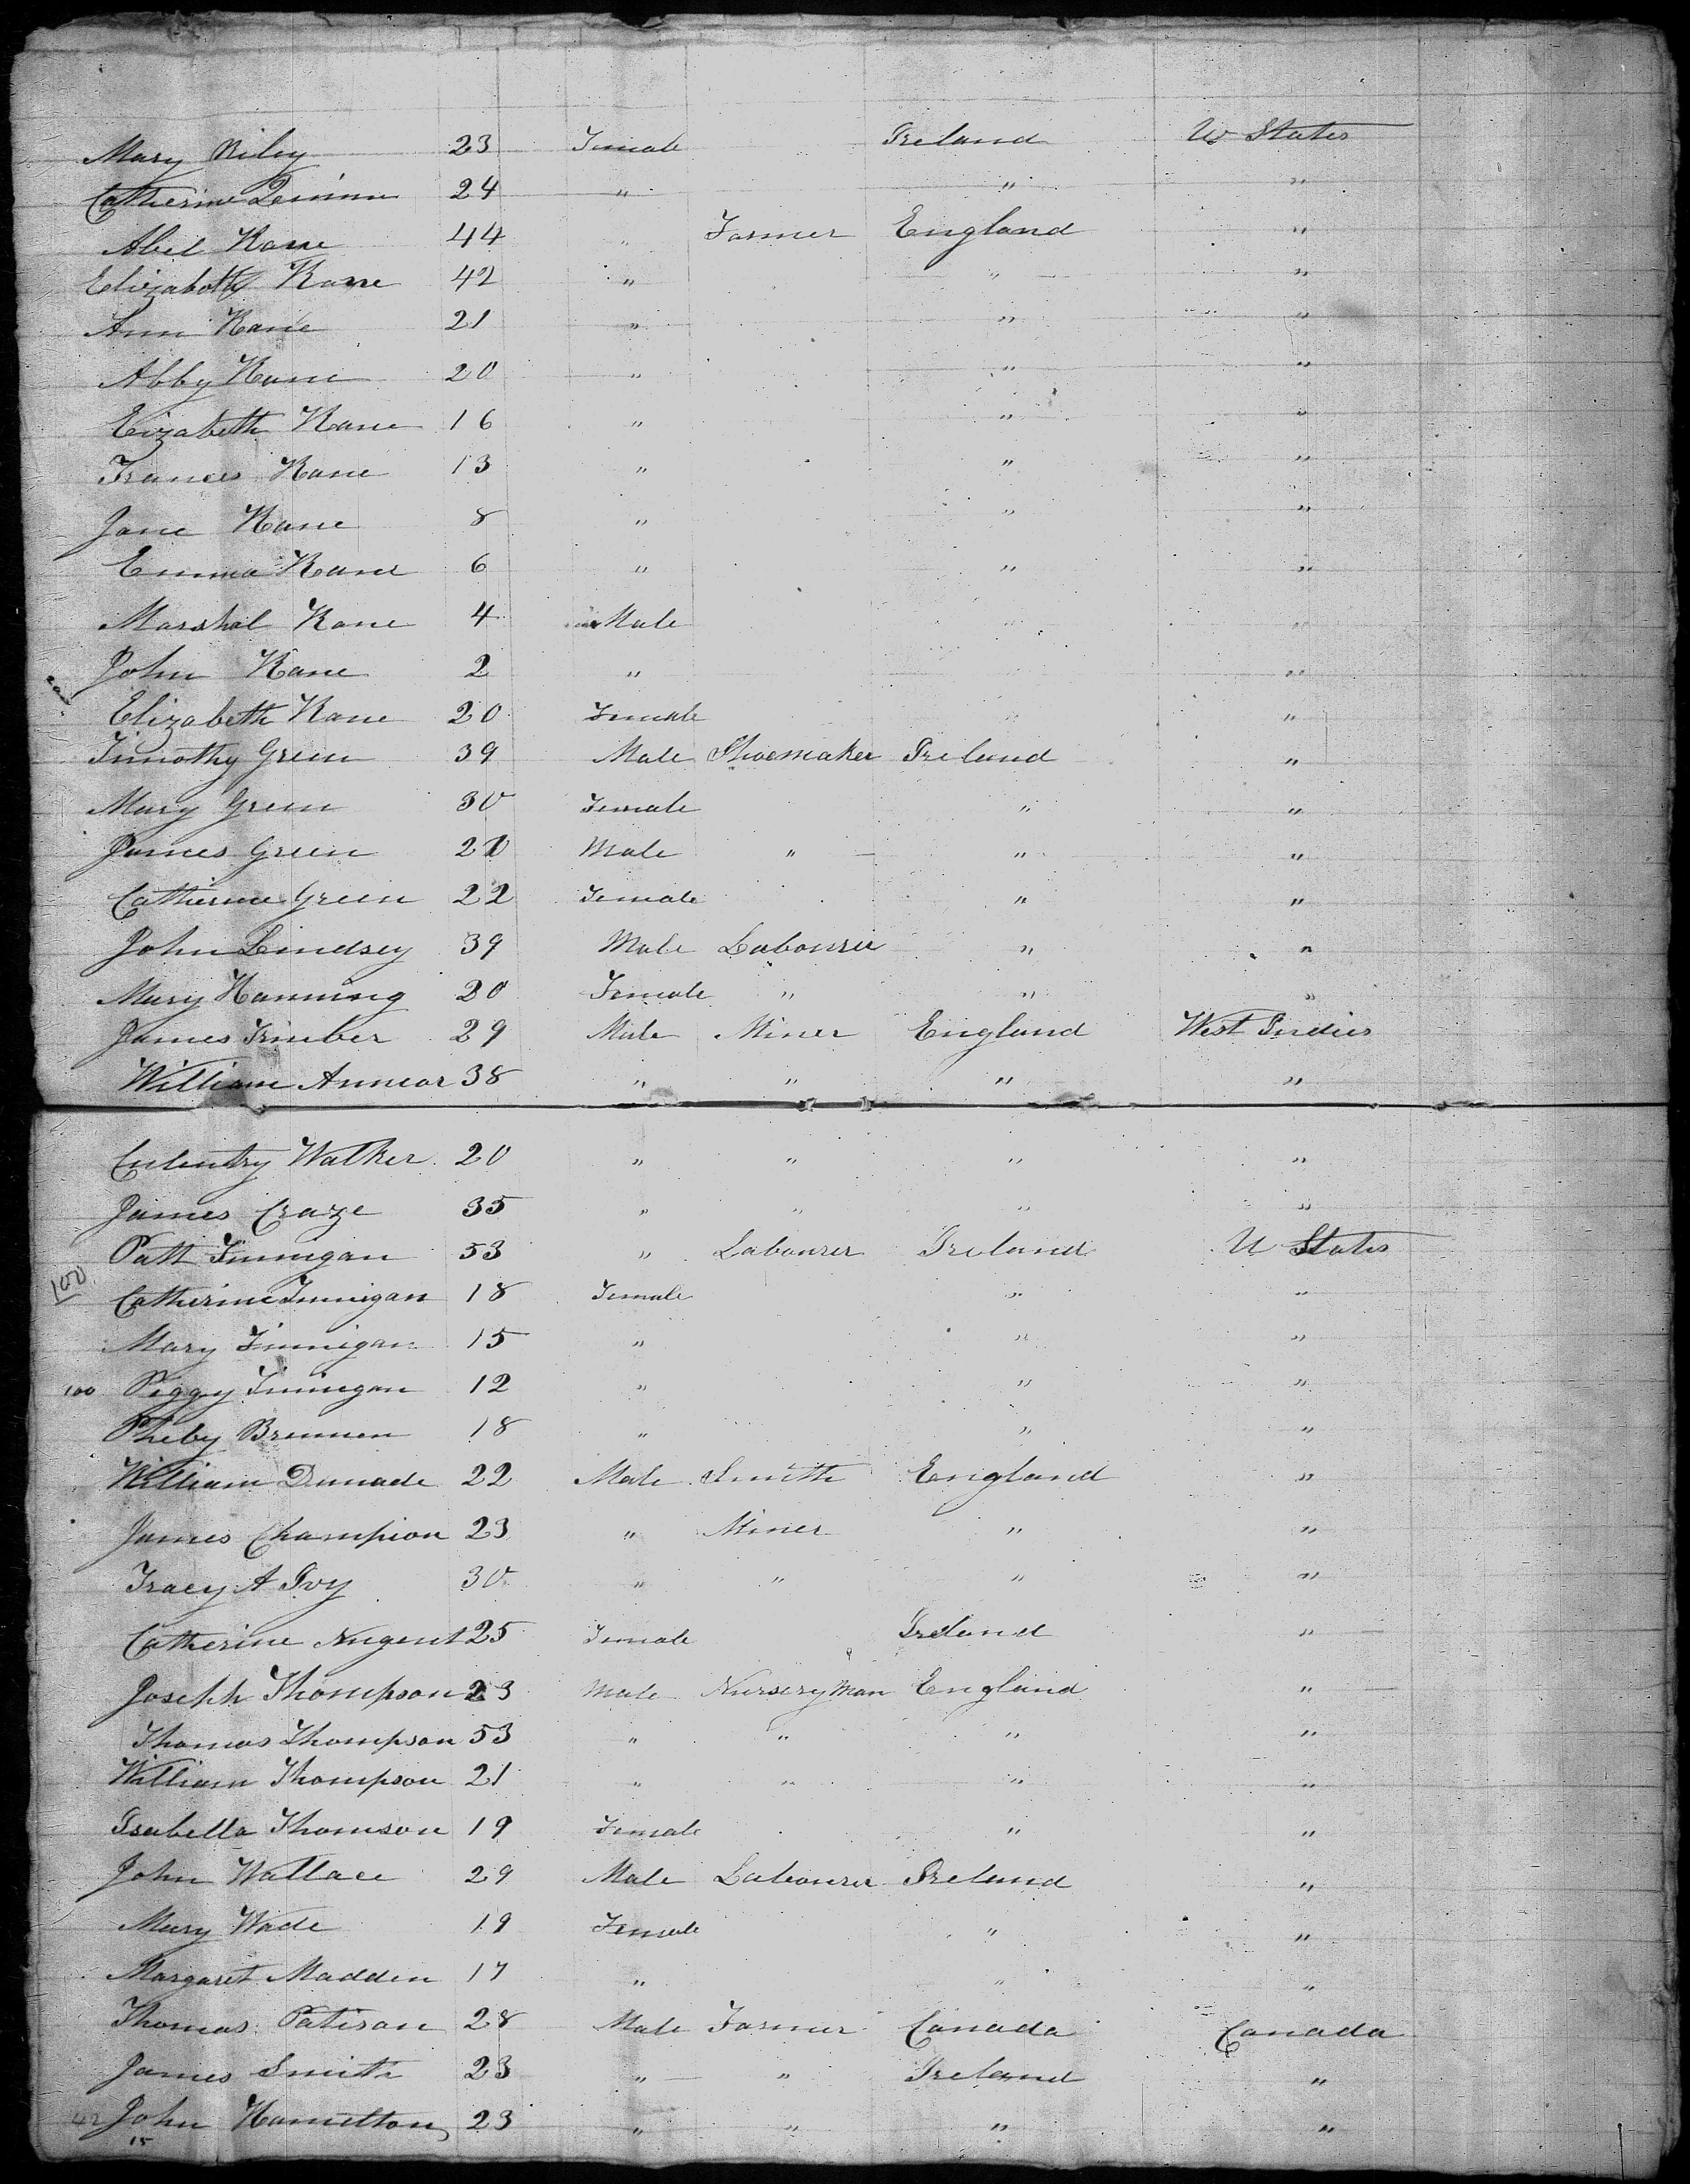 Mary Riley 23 Female Ireland U States
Catherine 24 " " "
Abel Kane 44 " Farmer England "
Elizabeth Kane 42 " " "
Ann Kane 21 " " "
Abby Kane 20 " " "
Eizabeth Kane 16 " " "
Frances Kane 13 " " "
Jane Kane 8 " " "
Emma Kane 6 " " "
Marshal Kane 4 Male " "
John Kane 2 " " "
Elizabeth Kane 20 Female " "
Timothy Green 39 Male Shoemaker Ireland "
Mary Green 30 Female " "
James Green Male " " "
Catherine Green 22 Female " "
John Lindsey 39 Male Labourer " "
Mary Hanning 20 Female " " "
James Trimber 29 Male Miner England West Indies
William Annear 38 " " " "
Walker 20 " " " "
James Craze 35 " " " "
Patt Finnigan 53 " Labourer Ireland U States
100
Catherine Finnigan 18 Female " "
Mary Finnigan 15 " " "
100 Peggy Finnigan 12 " " "
Pheby Brennen 18 " " "
William Dunade 22 Male Smith England "
James Champion 23 " Miner " "
Tracy A Ivy 30 " " " "
Catherine Nugent 25 Female Ireland "
Joseph Thompson 23 Male Nursery Man England "
Thomas Thompson 53 " " " "
William Thompson 21 " " " "
Isabella Thomson 19 Female " "
John Wallace 29 Male Labourer Ireland "
Mary Wade 19 Female " "
Margaret Madden 17 " " "
Thomas Patison 28 Male Farmer Canada Canada
James Smith 23 " " Ireland "
42 John Hamilton 23 " " " "
15